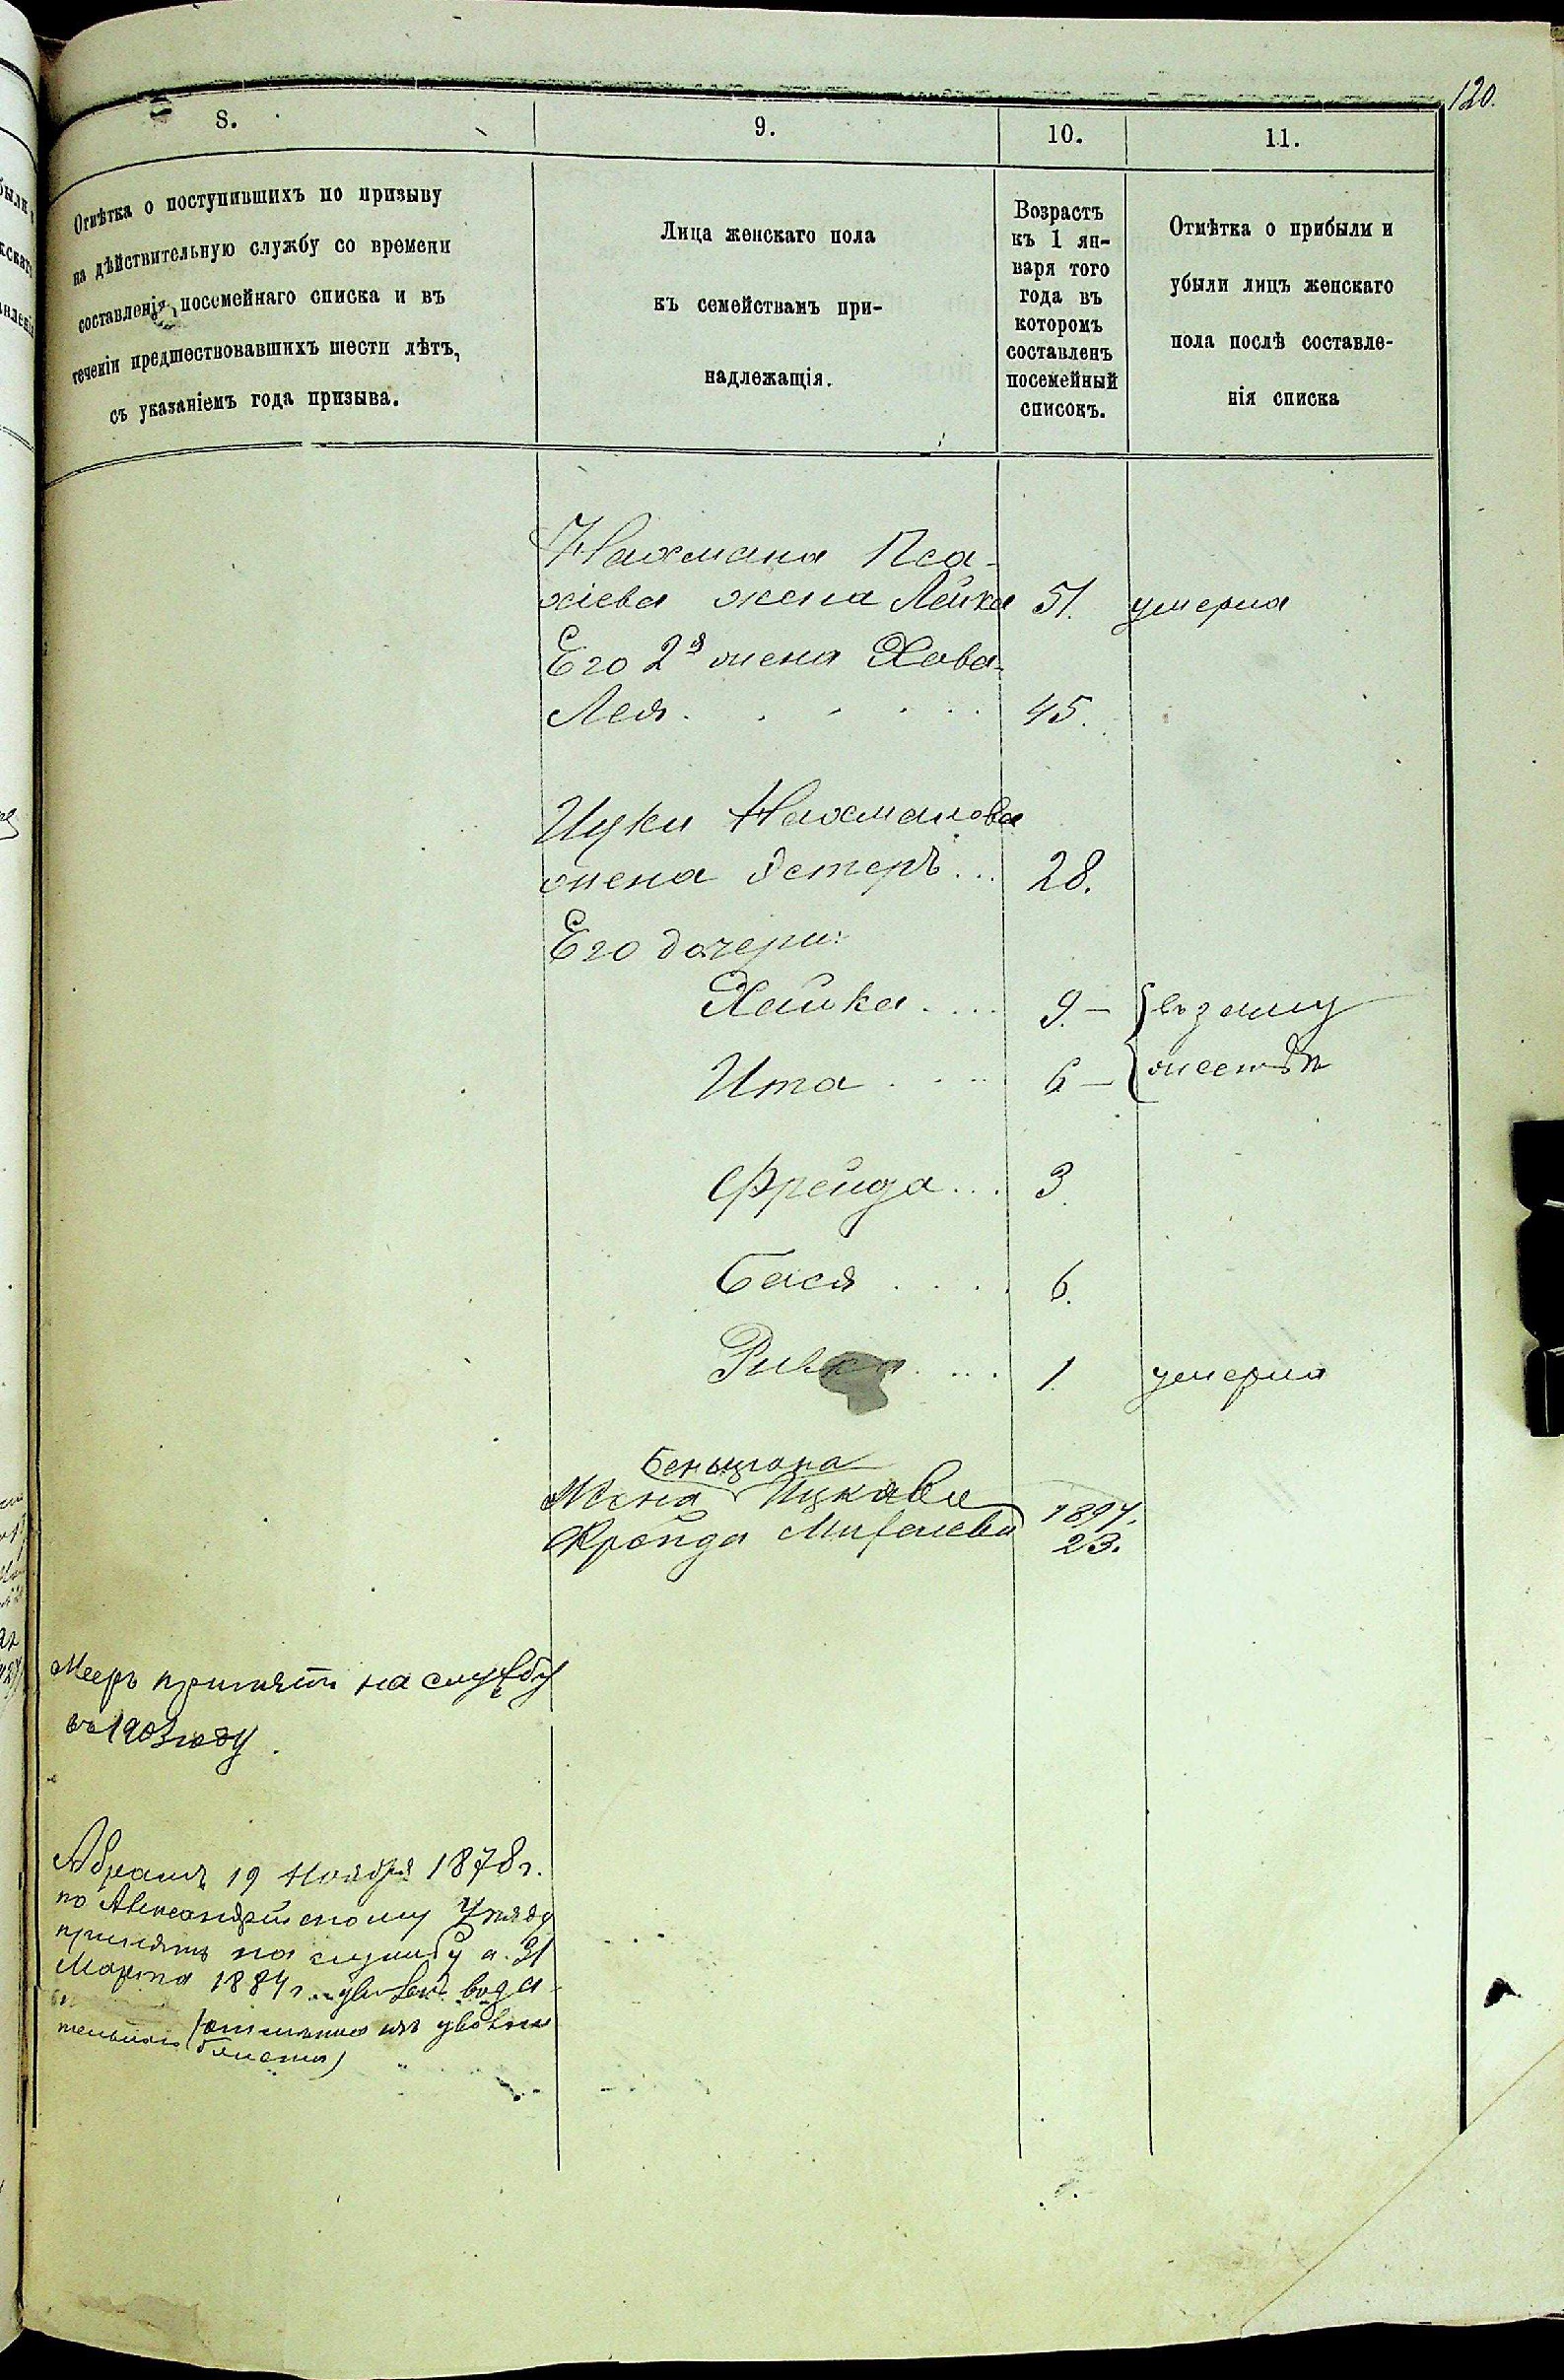 120.
8.
9.
10.
11.
Отмѣтка о поступившихъ по призыву
на дѣйствительную службу со времени
составленія посемейнаго списка и въ
теченіи предшествовавшихъ шести лѣтъ,
съ указаніемъ года призыва.
Лица женскаго пола
къ семействамъ при-
надлежащія.
Возрастъ
къ 1 ян-
варя того
года въ
которомъ
составленъ
посемейный
списокъ.
Отмѣтка о прибыли и
убыли лицъ женскаго
пола послѣ составле-
нія списка
Нахмана Пса-
хіева жена Лейка 51. умерла
Его 2я жена Хова-
Лея. 45.
Ицки Нахманова
жена Эстеръ... 28.
Его дочери:
Хайка.... 9.— въ заму
Ита.... 6— жествѣ
Фрейда... 3.
Бася.... 6.
Ривка.... 1. умерла
Беньціона
Жена Ицкова 1897.
Фрейда 23.
Мееръ принятъ на службу
въ 1903 году.
Абрамъ 19 Ноября 1878 г.
по Александрійскому Уѣзду
принятъ на службу а 31
Марта 1884 г.
билета)